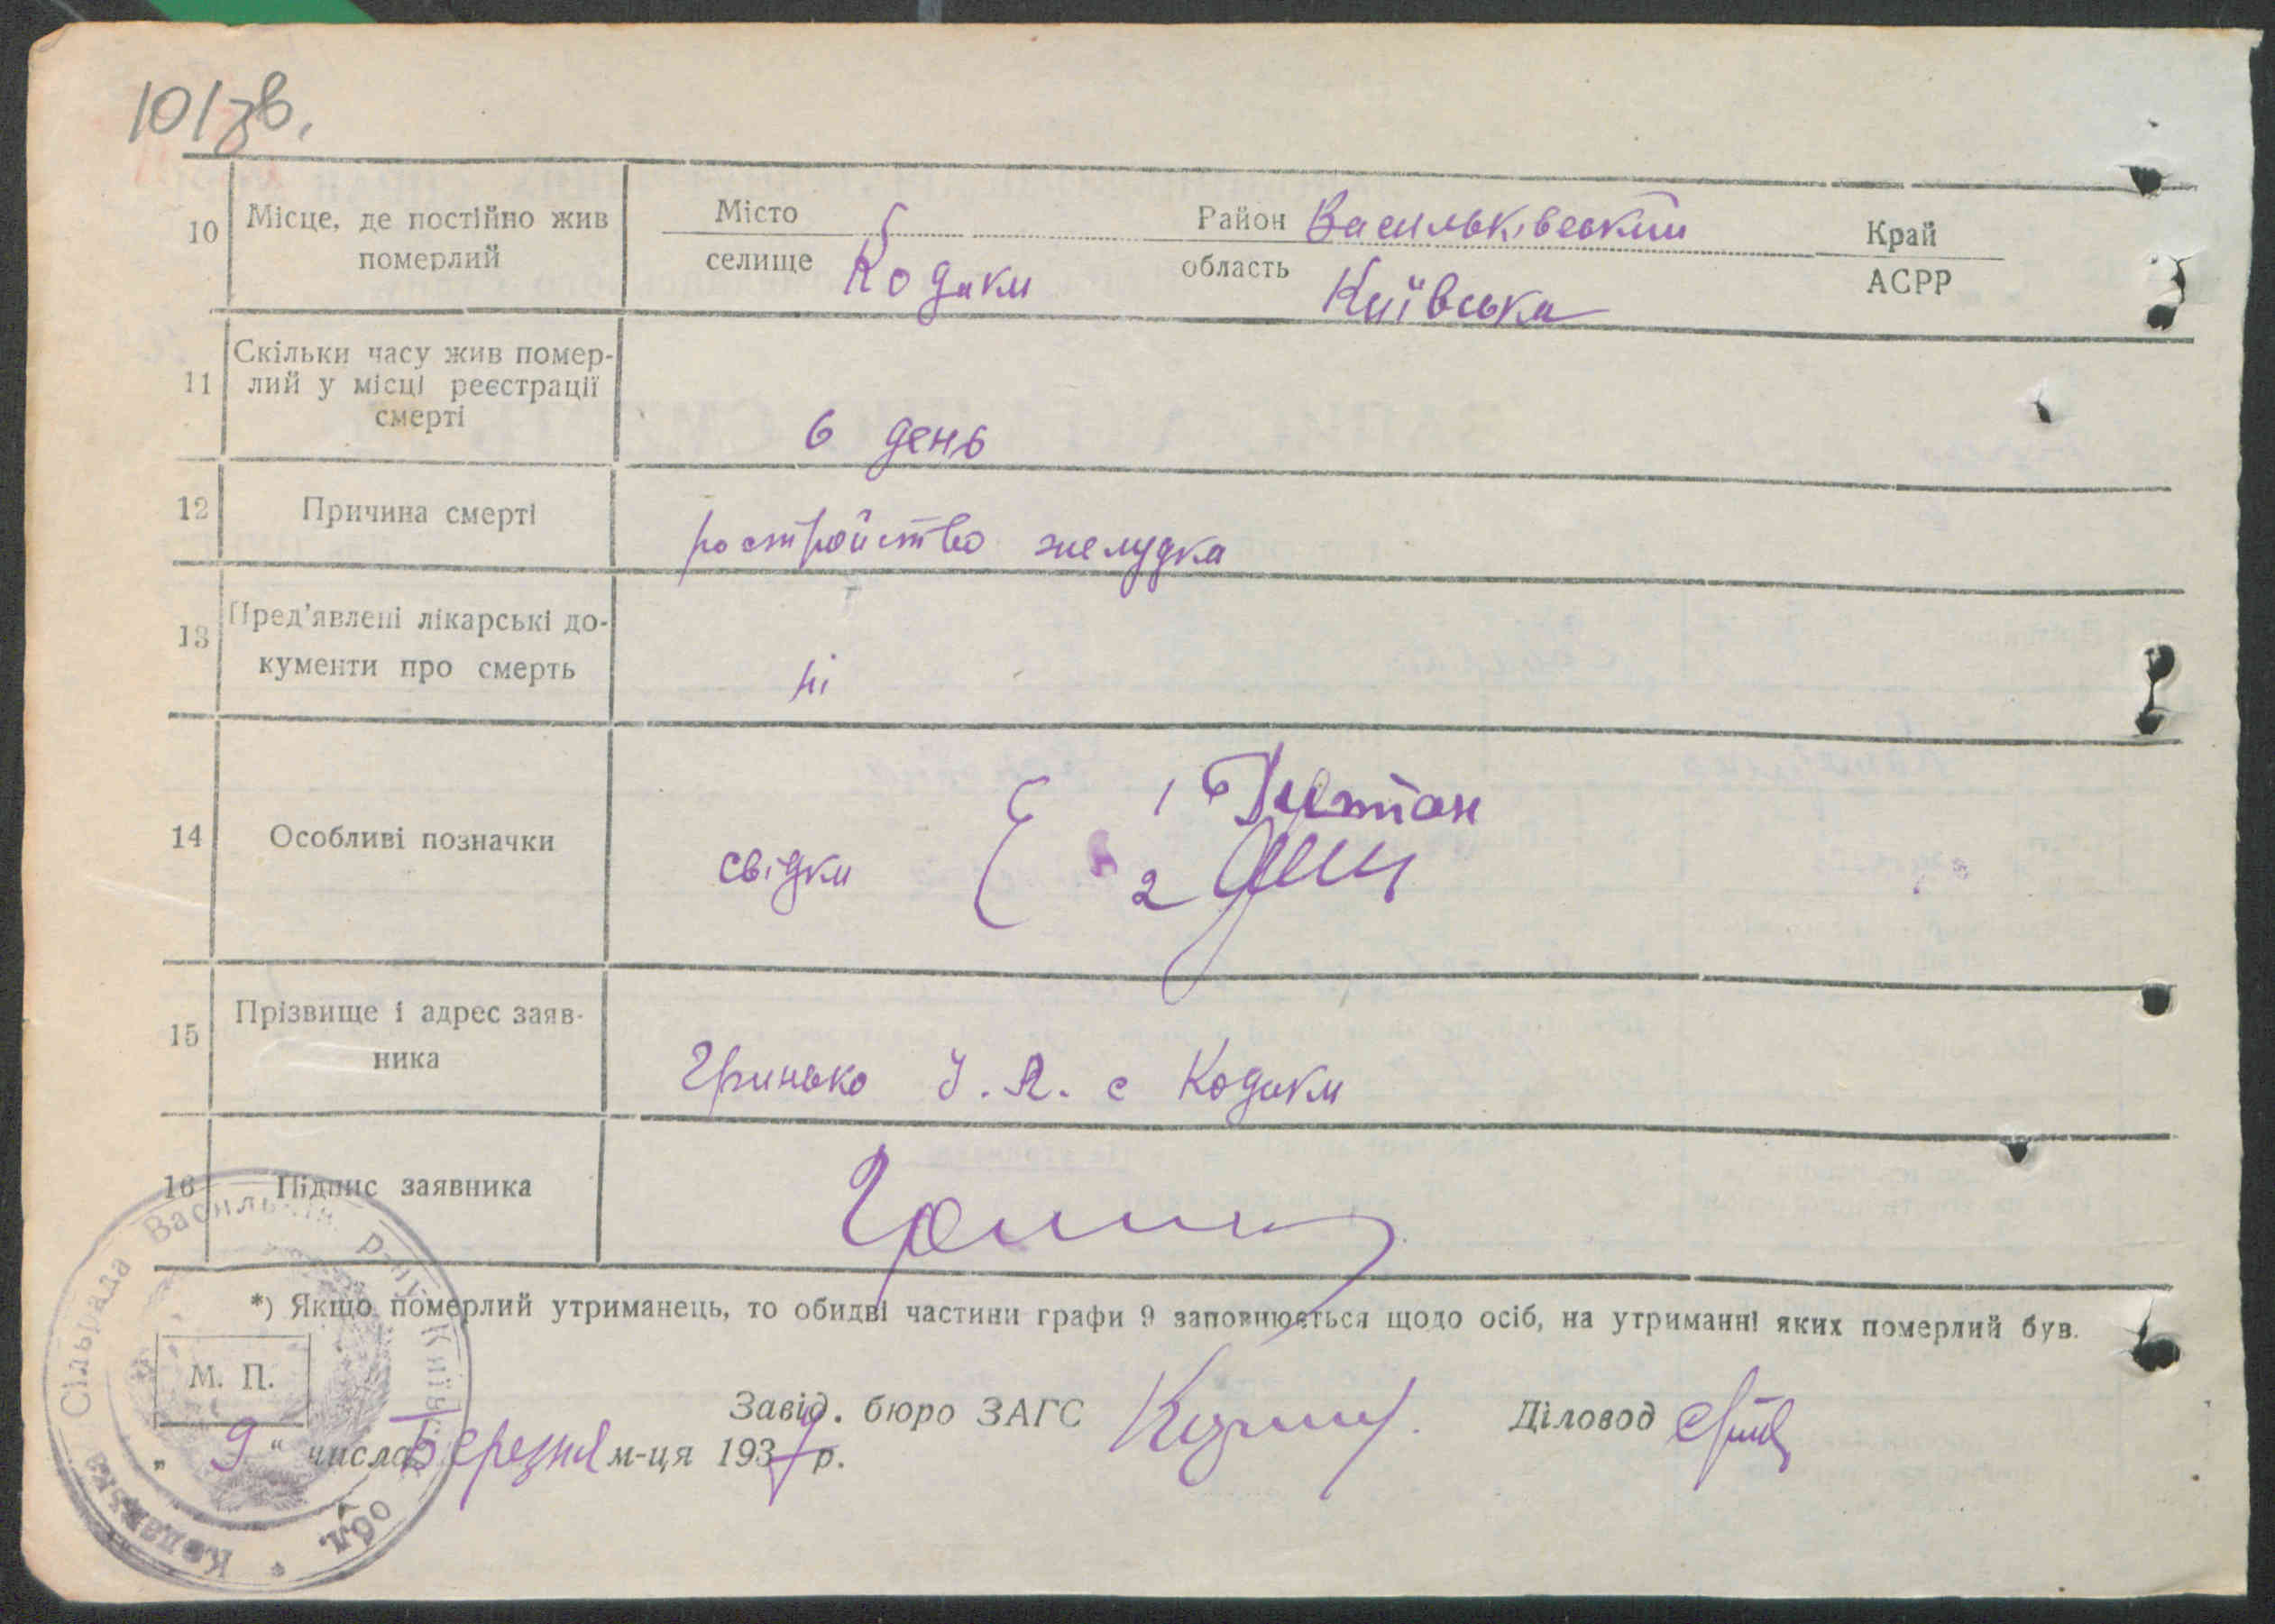 101 зв.
10 Місце, де постійно жив померлий
Місто
селище Кодаки
Район Васильківський
область Київська
Край
АСРР
11 Скільки часу жив помер-
лий у місці реєстрації
смерті
6 день
12 Причина смерті
розтройство желудка
13 Пред'явлені лікарські до-
кументи про смерть
ні
14 Особливі позначки
свідки
1
2
15 Прізвище і адрес заяв-
ника
Гринько У. Я. с Кодаки
16 Підпис заявника
*) Якщо померлий утриманець, то обидві частини графи 9 заповнюється щодо осіб, на утриманні яких померлий був.
М. П.
Завід. бюро ЗАГС
Діловод
„ 9 " числа Березня м-ця 1937 р.
Кодакська Сільрада Васильків. р-ну Київ. обл.